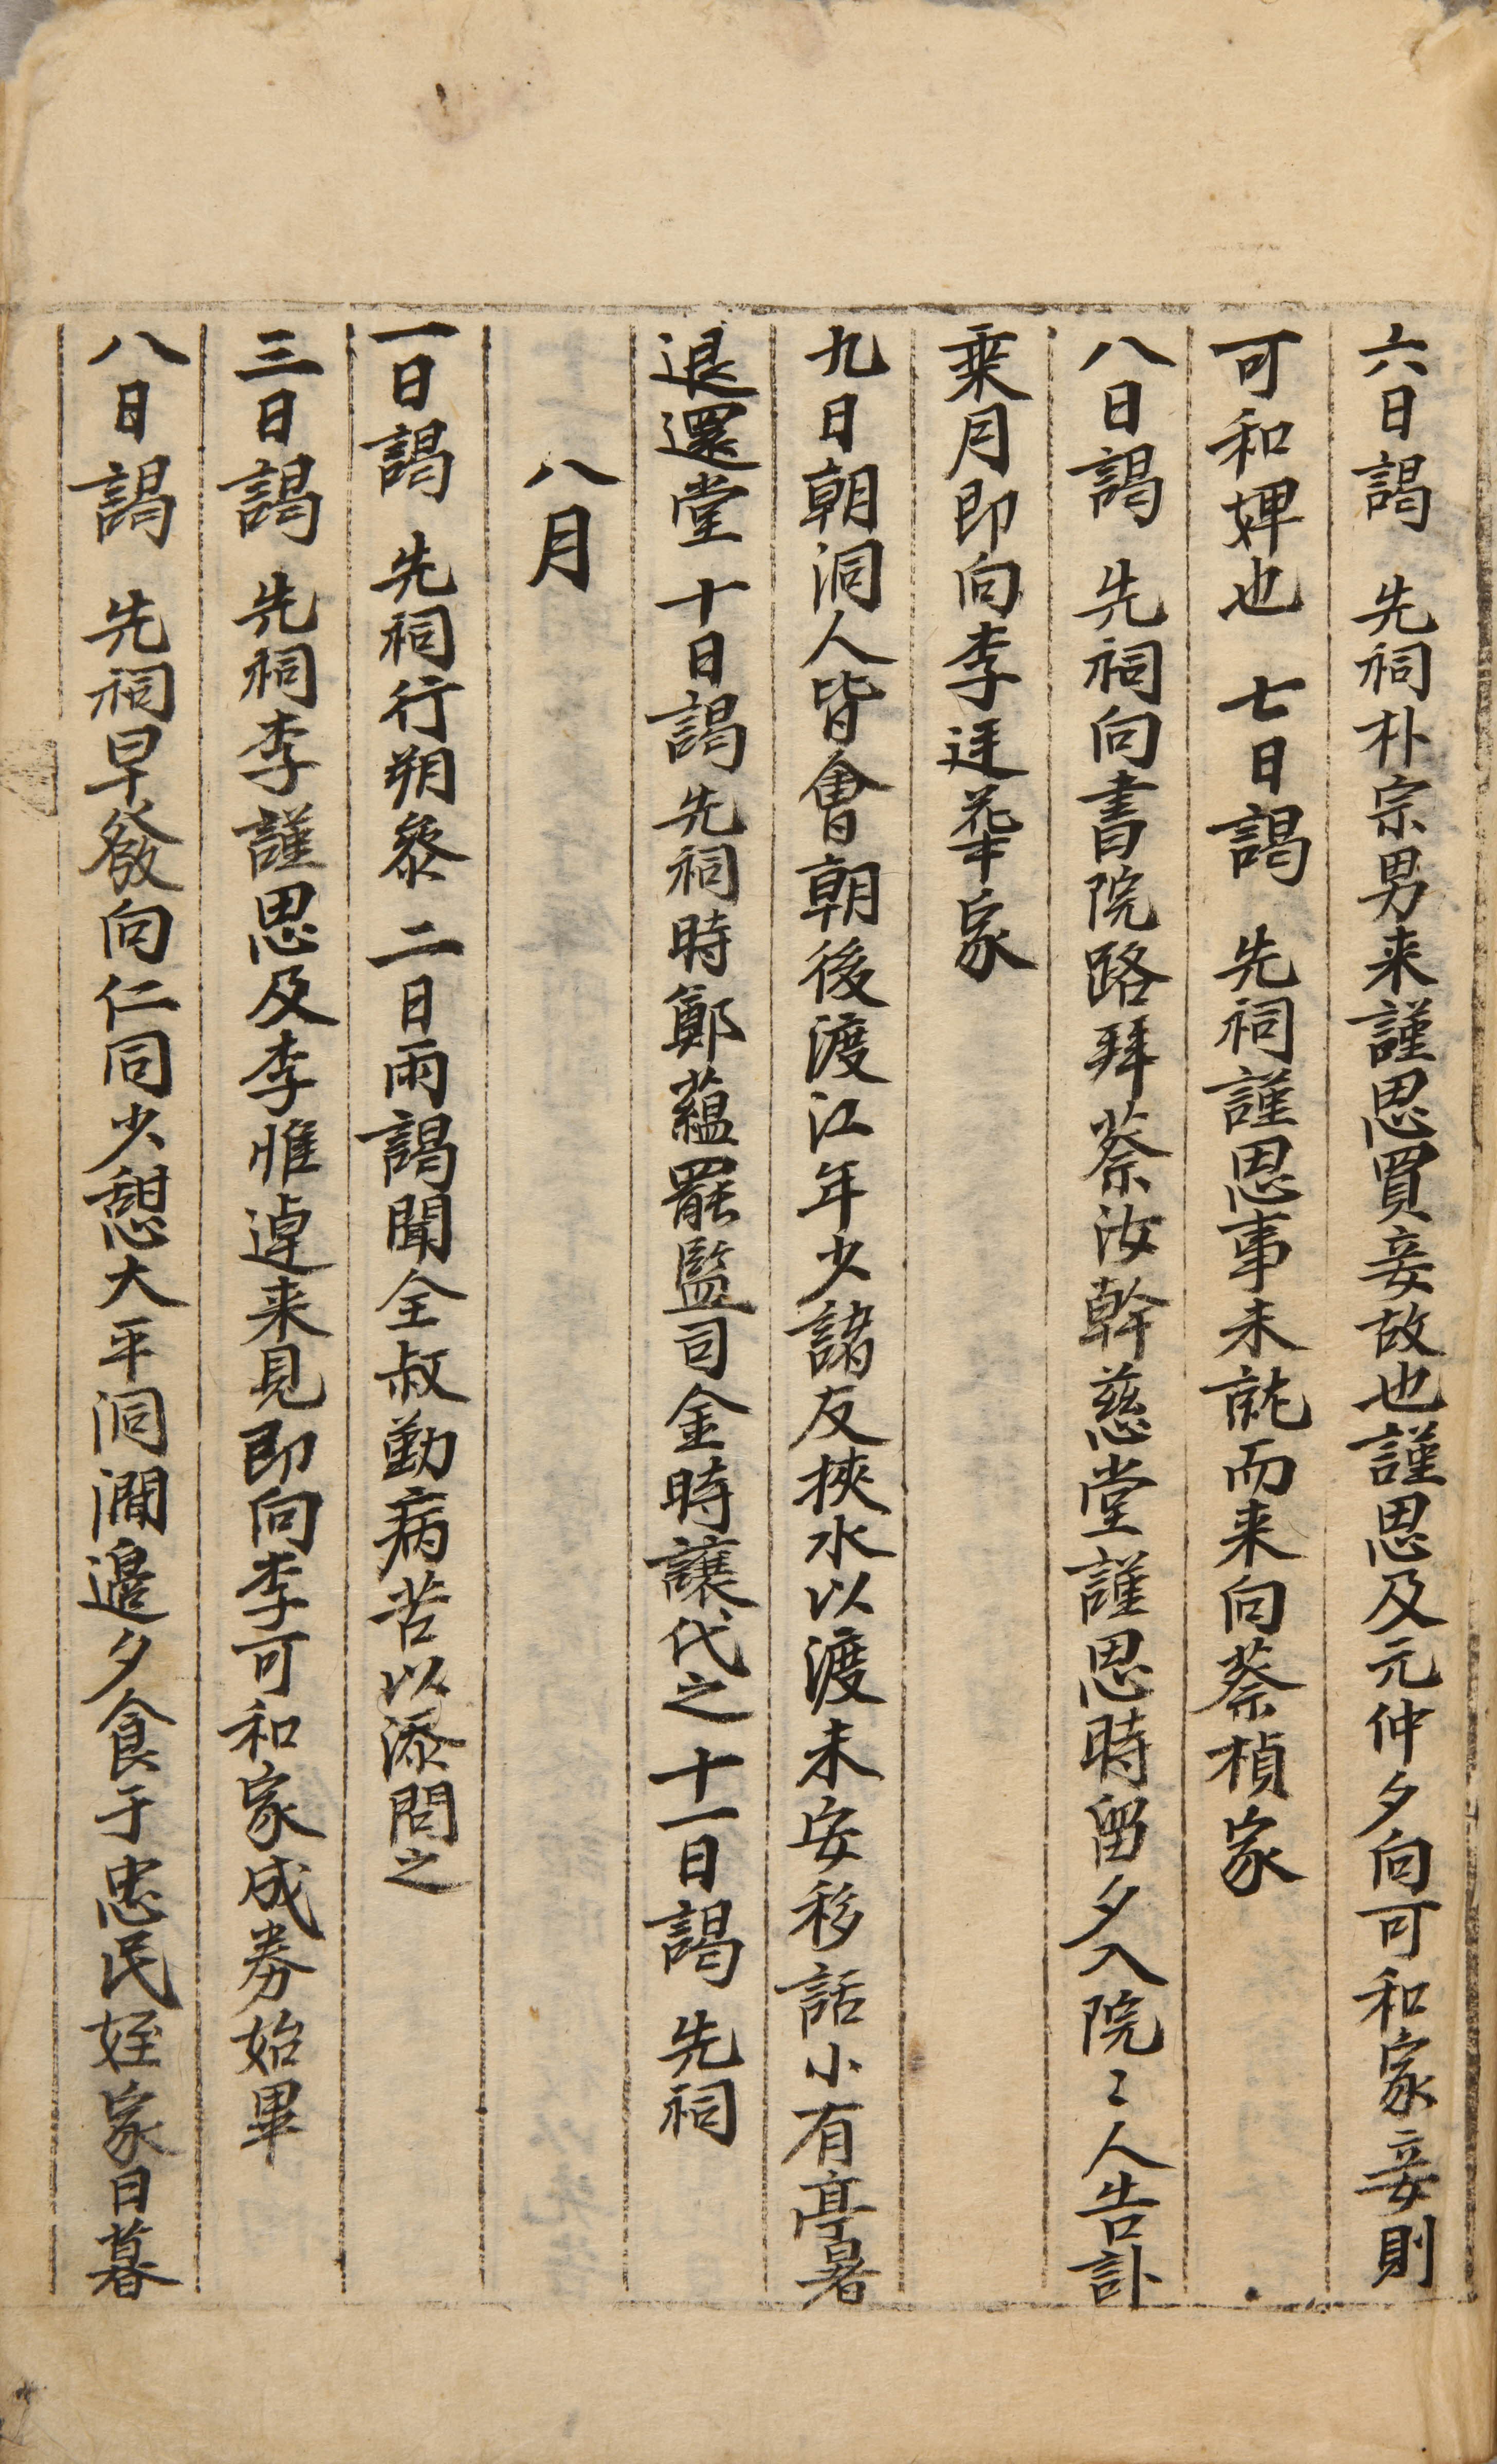 六日謁 先祠朴宗男来謹思買妾故也謹思及元仲夕向可和家妾則
可和婢也 七日謁 先祠謹思事未就而来向蔡楨家
八日謁 先祠向書院路拜蔡汝幹慈堂謹思時留夕入院〻人告訃
乗月即向李廷華家
九日朝洞人皆會朝後渡江年少諸友挾水以渡未安移話小有亭暑
退還堂 十日謁先祠時鄭蘊罷監司金時讓代之 十一日謁 先祠
八月
一日謁 先祠行朔叅 二日雨謁聞全叔勤病苦以添問之
三日謁 先祠李謹思及李惟逴来見即向李可和家成券始畢
八日謁 先祠早發向仁同少憇大平洞澗邉夕食于忠民姪家日暮